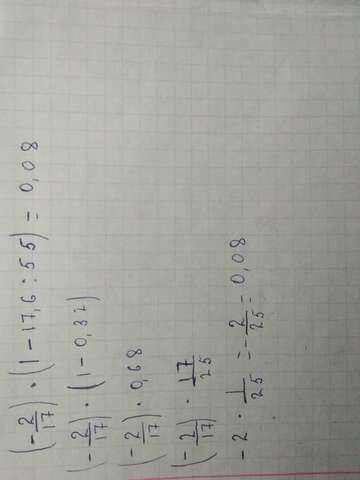 (-2/17) · (1-17,6:55) = 0,08
(-2/17) · (1-0,32)
(-2/17) · 0,68
(-2/17) · 17/25
-2 · 1/25 = -2/25 = 0,08